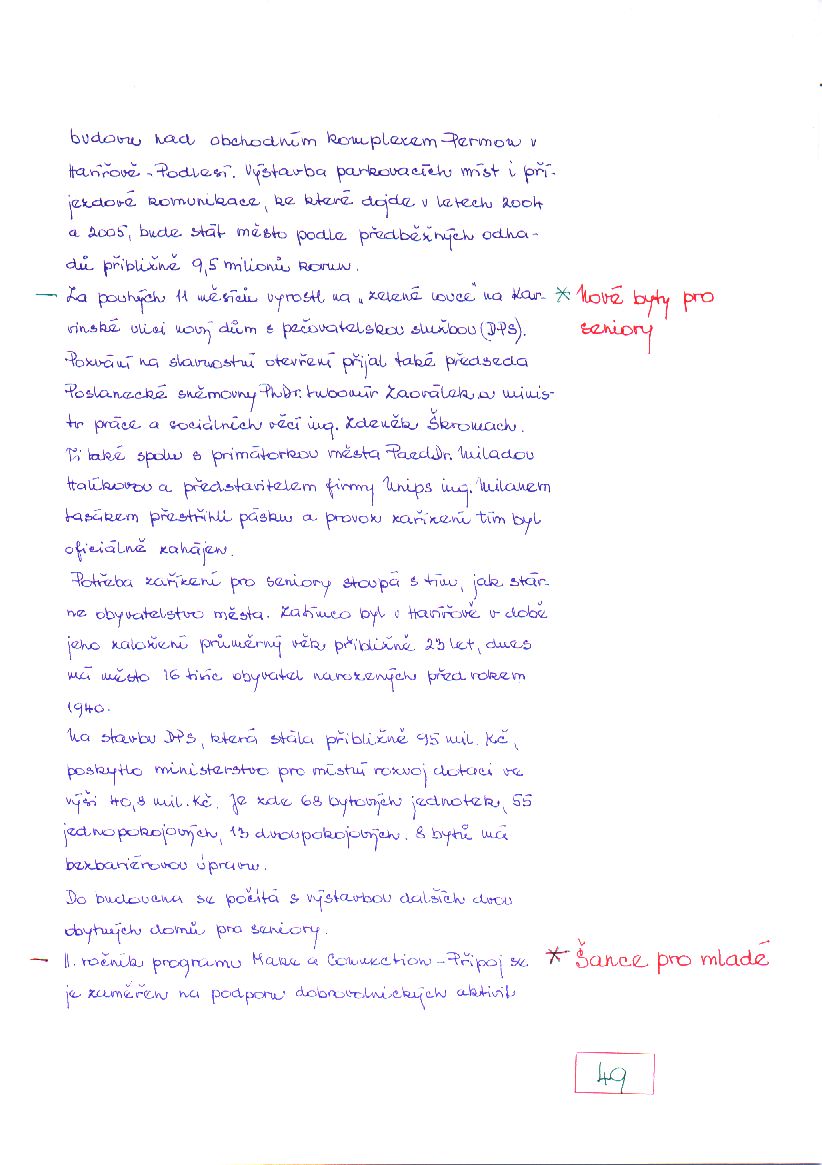 budovu nad obchodním komplexem Permon v
Havířově - Podlesí. Výstavba parkovacích míst i pří-
jezdové komunikace, ke které dojde v letech 2004
a 2005, bude stát město podle předběžných odha-
dů přibližně 9,5 milionů korun.
— Za pouhých 11 měsíců vyrostl na „zelené louce" na Kar- * Nové byty pro
vinské ulici nový dům s pečovatelskou službou (DPS). seniory
Pozvání na slavnostní otevření přijal také předseda
Poslanecké sněmovny PhDr. Lubomír Zaorálek a minis-
tr práce a sociálních věcí ing. Zdeněk Škromach.
Ti také spolu s primátorkou města PaedDr. Miladou
Halíkovou a představitelem firmy Unips ing. Milanem
přestřihli pásku a provoz zařízení tím byl
oficiálně zahájen.
Potřeba zařízení pro seniory stoupá s tím, jak stár-
ne obyvatelstvo města. Zatímco byl v Havířově v době
jeho založení průměrný věk přibližně 23 let, dnes
má město 16 tisíc obyvatel narozených před rokem
1940.
Na stavbu DPS, která stála přibližně 95 mil. Kč,
poskytlo ministerstvo pro místní rozvoj dotaci ve
výši 40,8 mil. Kč. Je zde 68 bytových jednotek, 55
jednopokojových, 13 dvoupokojových. 8 bytů má
bezbariérovou úpravu.
Do budoucna se počítá s výstavbou dalších dvou
obytných domů pro seniory.
— II. ročník programu Make a Connection - Připoj se * Šance pro mladé
je zaměřen na podporu dobrovolnických aktivit
49